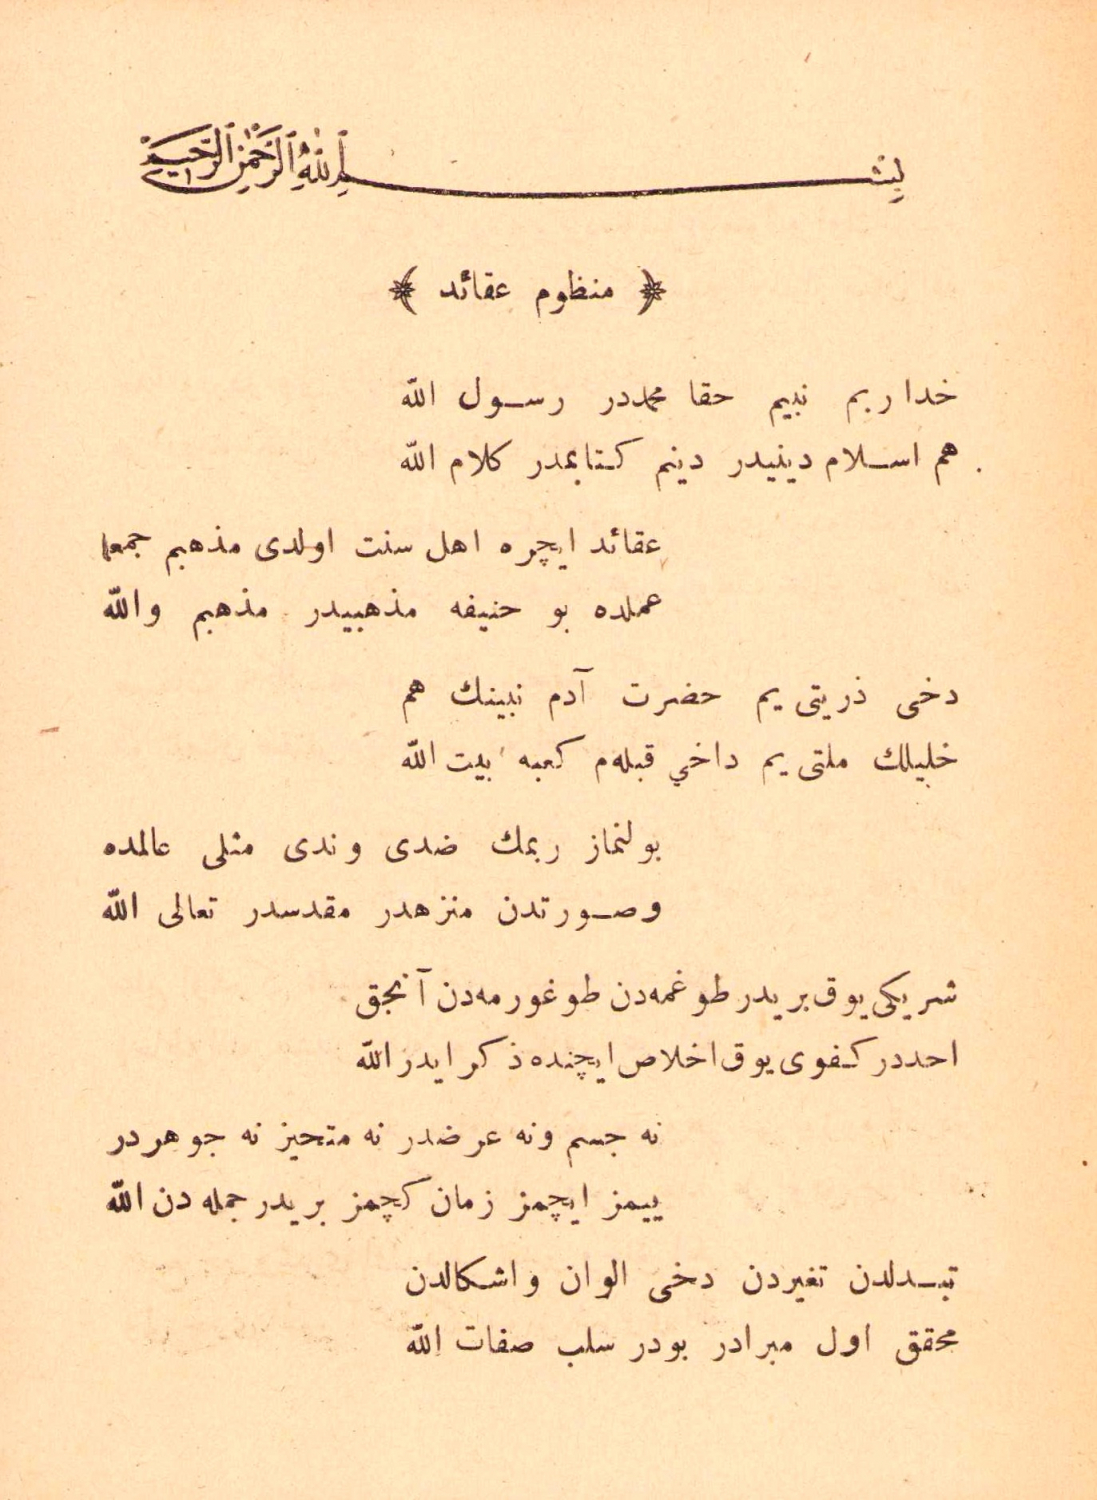 بسم الله الرحمن الرحيم
﴿ منظوم عقائد ﴾
خدا ربم نبیم حقا محمددر رسـول الله
هم اسـلام دینیدر دینم کتابمدر کلام الله
عقائد ایچره اهل سنت اولدی مذهبم جمعا
عملده بو حنیفه مذهبیدر مذهبم والله
دخی ذریتی یم حضرت آدم نبینك هم
خلیلك ملتی یم داخي قبله‌م کعبه بیت الله
بولنماز ربمك ضدی وندی مثلی عالمده
وصـورتدن منزهدر مقدسدر تعالی الله
شریکی یوق بریدر طوغمه‌دن طوغورمه‌دن آنجق
احددر کفوی یوق اخلاص ایچنده ذکر ایدر الله
نه جسم ونه عرضدر نه متحیز نه جوهردر
ییمز ایچمز زمان کچمز بریدر جمله‌دن الله
تبـدلدن تغیردن دخی الوان واشکالدن
محقق اول مبرادر بودر سلب صفات الله